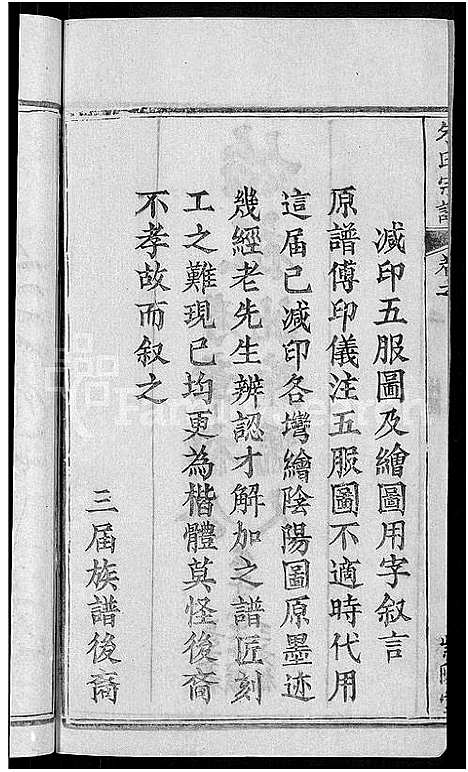 朱氏宗譜
卷之
減印五服圖及繪圖用字叙言
原譜傳印儀注五服圖不適時代用
這届已減印各塆繪陰陽圖原墨迹
幾經老先生辨認才解加之譜匠刻
工之難現已均更為楷體莫怪後裔
不孝故而叙之
三届族譜後裔